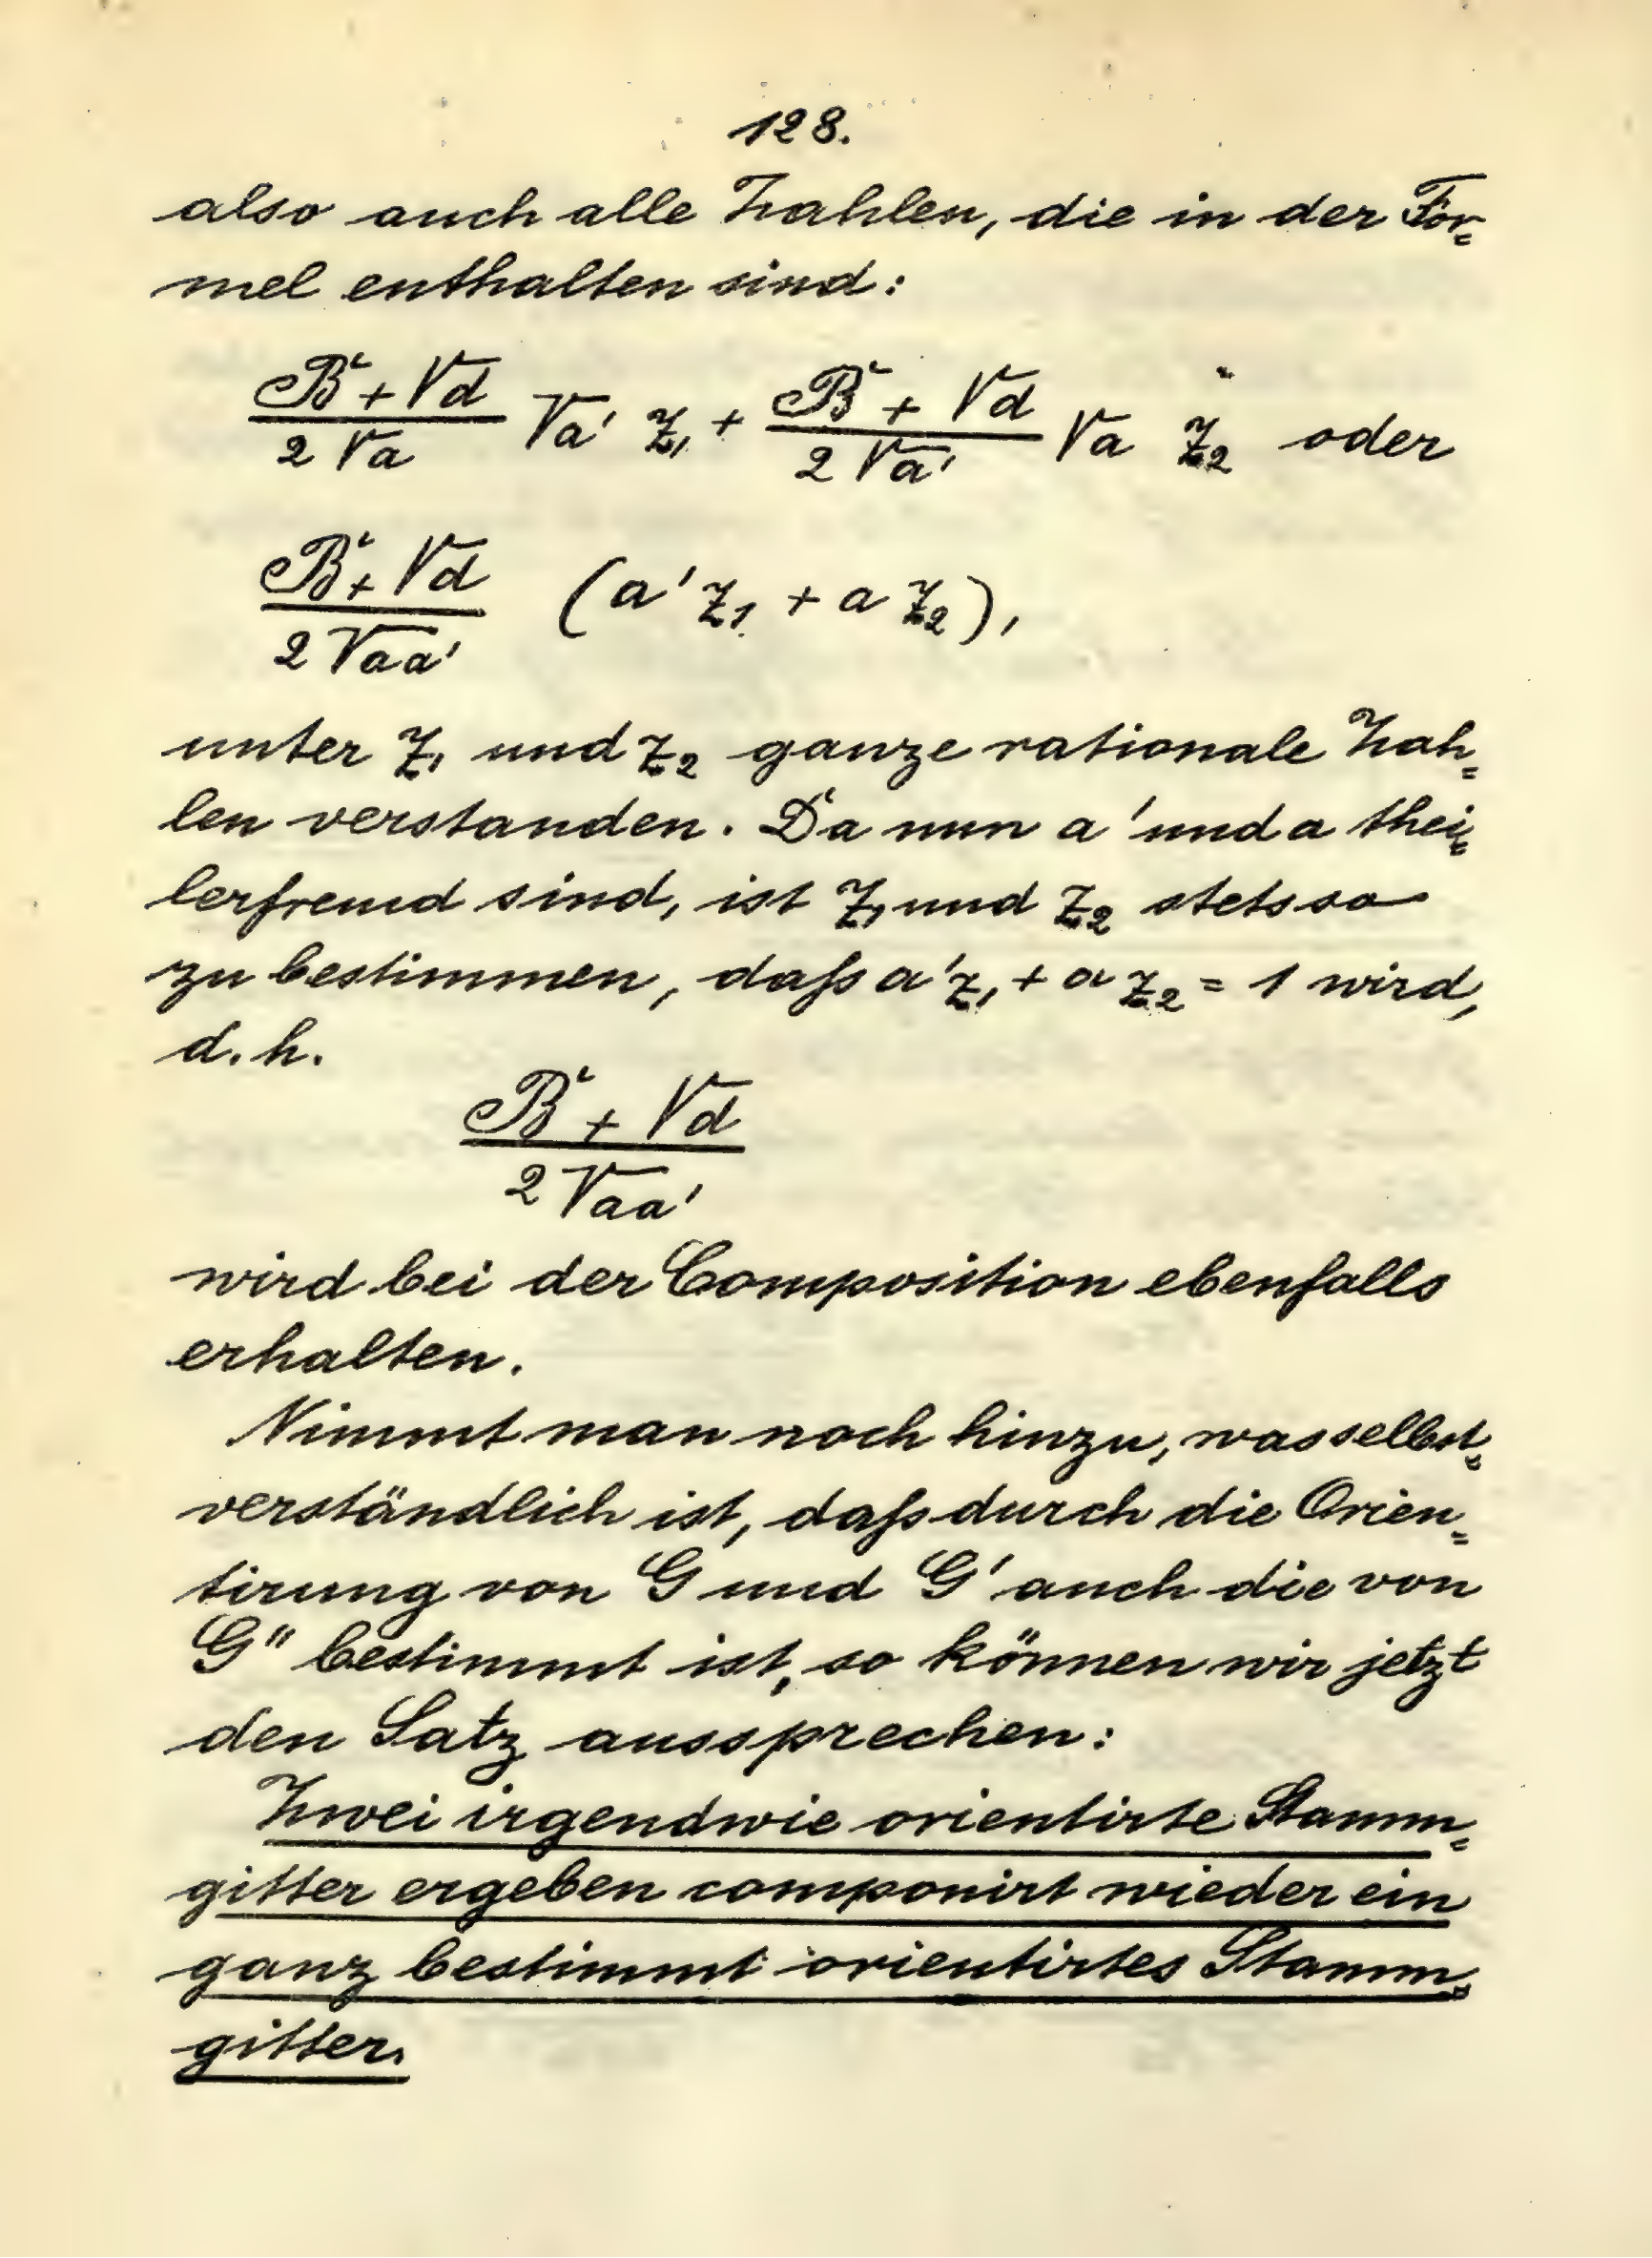 128.
also auch alle Zahlen, die in der For=
mel enthalten sind:
(B + √d)/(2√a) √a' z₁ + (B + √d)/(2√a') √a z₂ oder
(B + √d)/(2√aa') (a'z₁ + a z₂),
unter z₁ und z₂ ganze rationale Zah=
len verstanden. Da nun a' und a thei=
lerfremd sind, ist z₁ und z₂ stets so
zu bestimmen, daß a'z₁ + a z₂ = 1 wird,
d. h.
(B + √d)/(2√aa')
wird bei der Composition ebenfalls
erhalten.
Nimmt man noch hinzu, was selbst=
verständlich ist, daß durch die Orien=
tirung von G und G' auch die von
G" bestimmt ist, so können wir jetzt
den Satz aussprechen:
Zwei irgendwie orientirte Stamm=
gitter ergeben componirt wieder ein
ganz bestimmt orientirtes Stamm=
gitter.